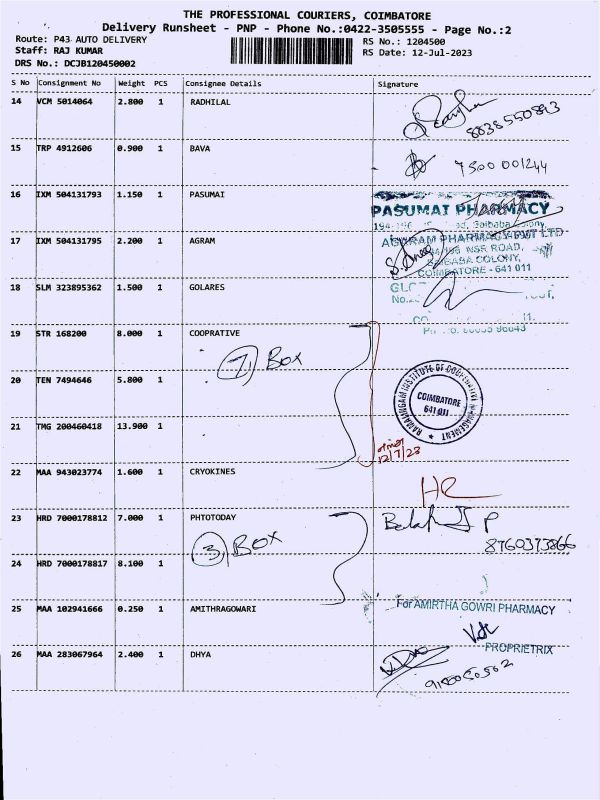 THE PROFESSIONAL COURIERS, COIMBATORE
Delivery Runsheet - PNP - Phone No.:0422-3505555 - Page No.:2
Route: P43 AUTO DELIVERY
RS No.: 1204500
Staff: RAJ KUMAR
RS Date: 12-Jul-2023
DRS No.: DCJB120450002
S No Consignment No Weight PCS Consignee Details Signature
14 VCM 5014064 2.800 1 RADHILAL
8838550893
15 TRP 4912606 0.900 1 BAVA
7500001244
16 IXM 504131793 1.150 1 PASUMAI
PASUMAI PHARMACY
17 IXM 504131795 2.200 1 AGRAM
NSR ROAD,
SAIBABA COLONY,
COIMBATORE - 641 011
18 SLM 323895362 1.500 1 GOLARES
19 STR 168200 8.000 1 COOPRATIVE
7, Box
20 TEN 7494646 5.800 1
RAMALINGAM INSTITUTE OF COOPERATIVE MANAGEMENT
COIMBATORE
641 011
21 TMG 200460418 13.900 1
12/7/23
22 MAA 943023774 1.600 1 CRYOKINES
23 HRD 7000178812 7.000 1 PHTOTODAY
3, BOX
8760373866
24 HRD 7000178817 8.100 1
25 MAA 102941666 0.250 1 AMITHRAGOWARI
For AMIRTHA GOWRI PHARMACY
PROPRIETRIX
26 MAA 283067964 2.400 1 DHYA